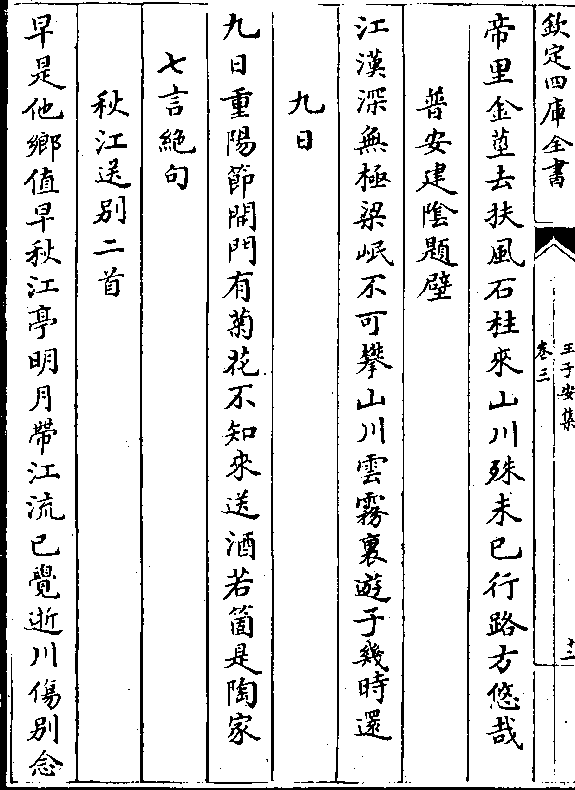 欽定四庫全書
王子安集
卷三
十二
帝里金莖去扶風石柱來山川殊未已行路方悠哉
普安建陰題壁
江漢深無極梁岷不可攀山川雲霧裏遊子幾時還
九日
九日重陽節開門有菊花不知來送酒若箇是陶家
七言絶句
秋江送别二首
早是他鄉值早秋江亭明月帶江流已覺逝川傷别念